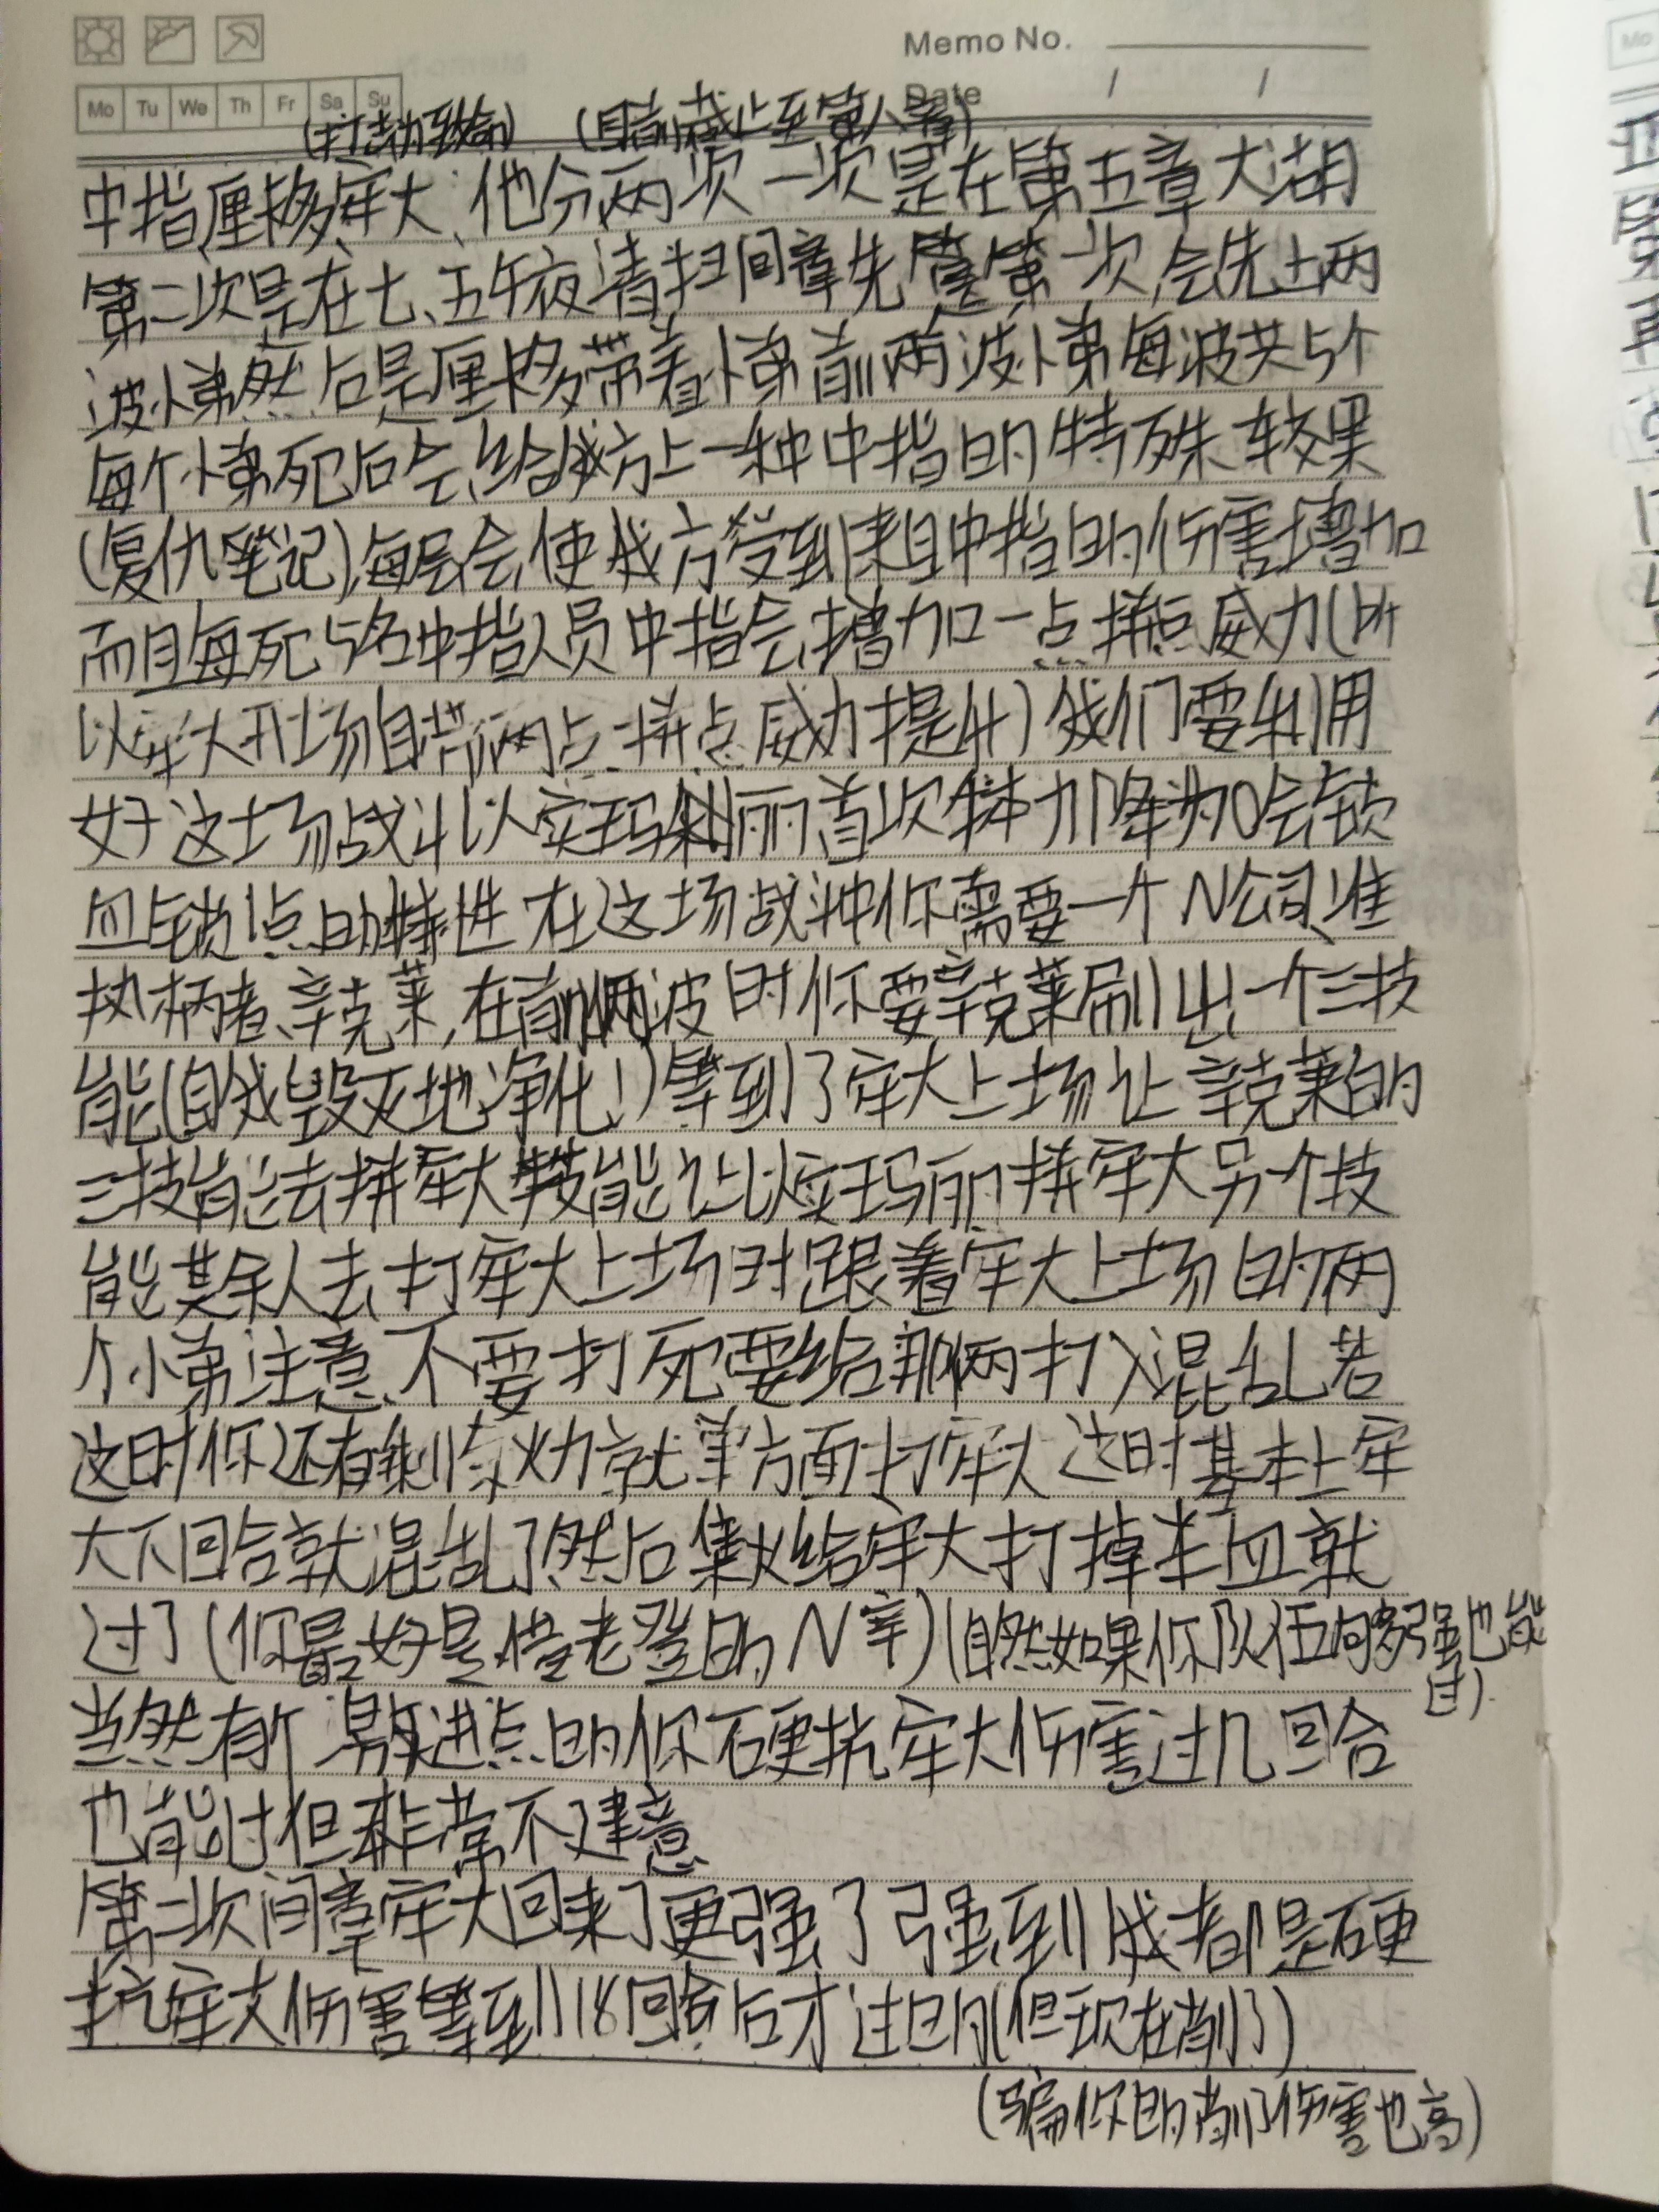 Memo No.
Mo Tu We Th Fr Sa Su
Date / /
(打劫致命) (目前截止至第八章)
中指厘移牢大、他分两次一次是在第五章大湖
第二次是在七、五午夜清扫间章先 第一次,会先上两
波小弟然后是厘移带着小弟前两波小弟每波共5个
每个小弟死后会给我方上一种中指的特殊效果
(复仇笔记),每层会使我方受到来自中指的伤害增加
而且每死5名中指人员中指会增加一点拼点威力(所
以牢大开场自带两点拼点威力提升)我们要利用
好这场战斗以实玛利丽首次体力降为0会锁
血与锁1点的特性在这场战斗中你需要一个N公司准
执柄者、辛克莱,在前两波时你要辛克莱刷出一个三技
能(自我毁灭地净化!)等到了牢大上场让辛克莱的
三技能去拼牢大 技能让以实玛丽拼牢大另个技
能其余人去打牢大上场时跟着牢大上场的两
个小弟注意不要打死要给那俩打入混乱若
这时你还有剩余火力就单方面打牢大这时基本上牢
大下回合就混乱了然后集火给牢大打掉半血就
过了(你最好是借老登的N辛)(自然如果你队伍够强也能
过)
当然有个 进点的你硬抗牢大伤害过几回合
也能过但非常不建意
第二次间章牢大回来了更强了强到我都是硬
抗牢大伤害等到18回合后才过的(但现在削了)
(骗你的削了伤害也高)